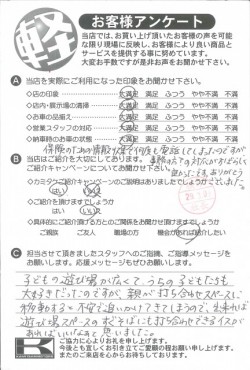 軽
お客様アンケート
当店では、お買い上げ頂いたお客様の声を可能
な限り現場に反映し、お客様により良い商品と
サービスを提供する事に努めています。
大変お手数ですが是非お声をお聞かせ下さい。
A 当店を実際にご利用になった印象をお聞かせ下さい。
◇店の印象 大満足 満足 ふつう やや不満 不満
◇店内・展示場の清掃 大満足 満足 ふつう やや不満 不満
◇お車の品揃え 大満足 満足 ふつう やや不満 不満
◇営業スタッフの対応 大満足 満足 ふつう やや不満 不満
◇納車時のお車の状態 大満足 満足 ふつう やや不満 不満
B 当店はご紹介を大切にしております。
ご紹介キャンペーンについてお聞かせ下さい。
はい いいえ
◇ご紹介を頂けますでしょうか
はい いいえ
◇具体的にご紹介頂けるとのご関係をお聞かせ頂けますでしょうか
ご親族 ご友人 職場の方 機会があれば紹介したい
C 担当させて頂きましたスタッフへのご指摘、ご指導メッセージを
お願いします。応援メッセージもぜひお願いします。
子どもの遊び場が広くて、うちの子どもたちも
大好きだったのですが、親が打ち合わせスペースに
移動すると不安で追いかけてきてしまうので、出来れば
遊び場スペースの近くそばにも打ち合わせできるイスが
あればいいなぁと思いました。
K ご協力に心よりお礼を申し上げます。
今後とも宜しくお引き立てご愛顧の程お願い申し上げます。
またのご来店を心からお待ちしております。